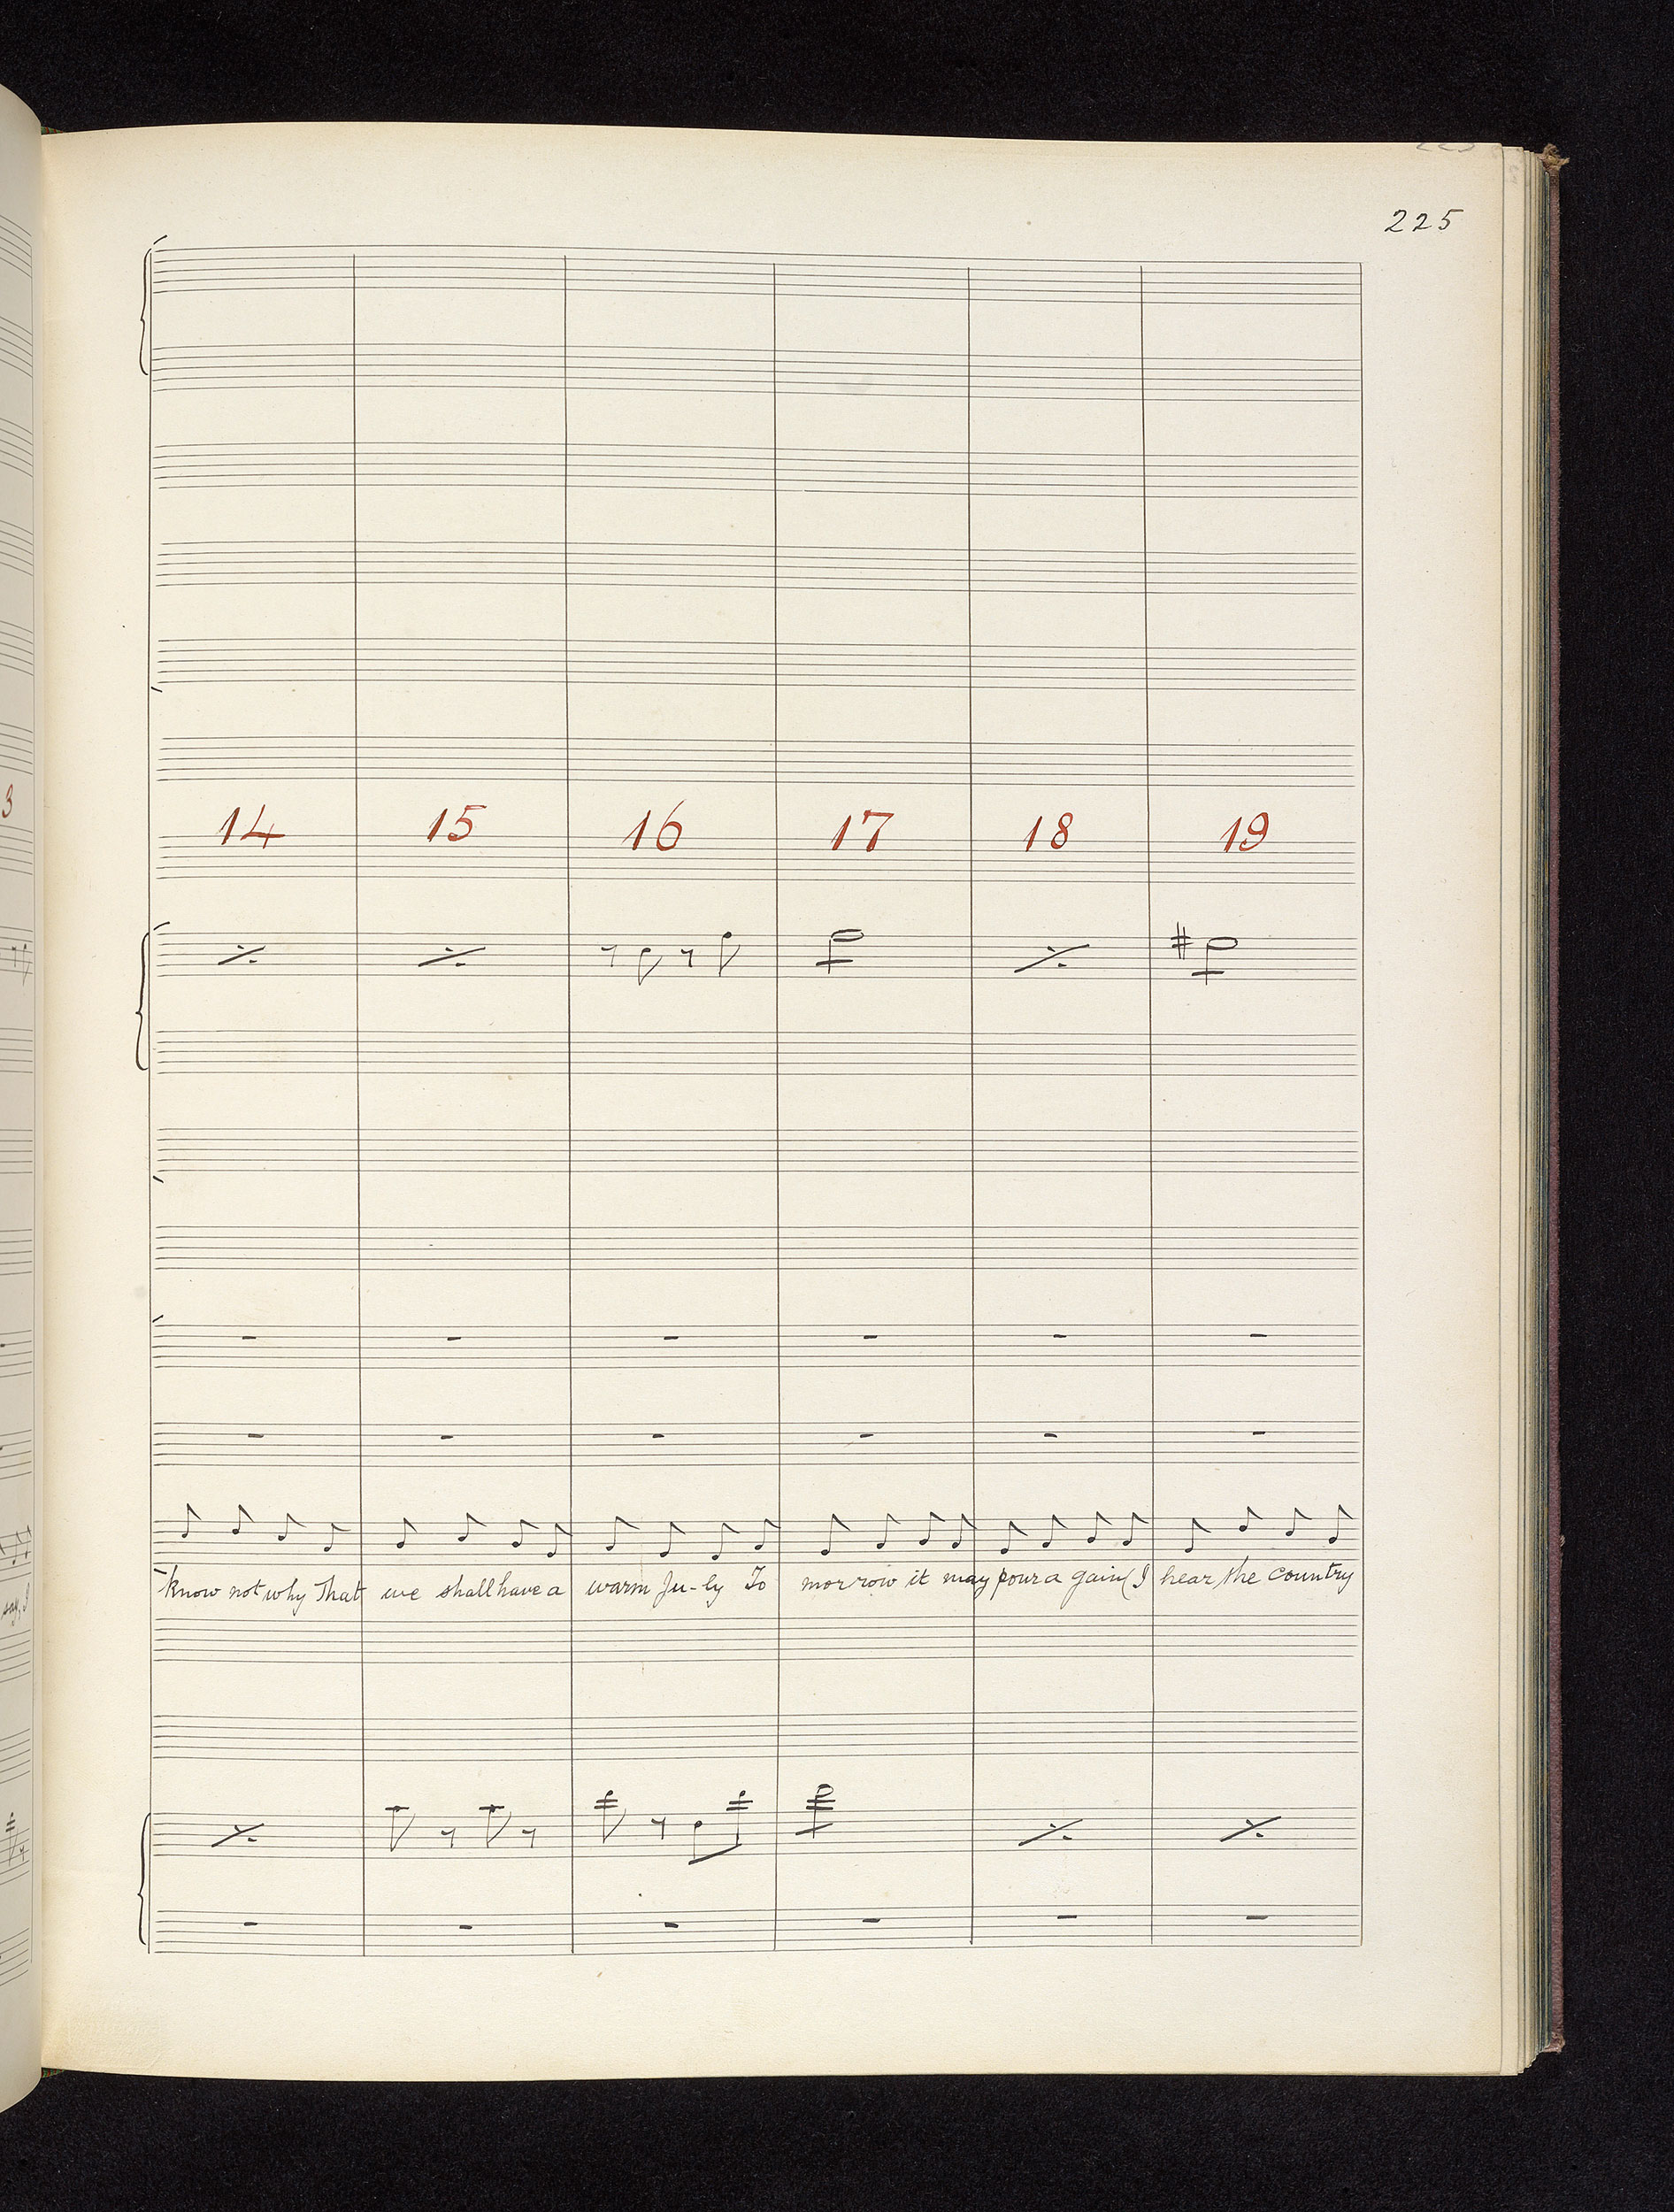 225
14 15 16 17 18 19
know not why That we shall have a warm Ju-ly To morrow it may pour a gain (I hear the country
3
say, I